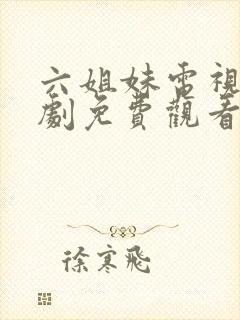 六姐妹電視
劇免費觀看
徐寒飛